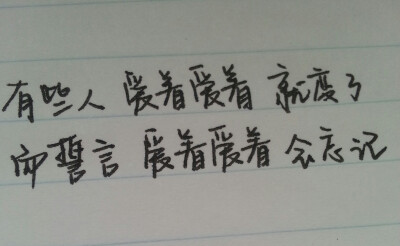 有些人 爱着爱着 就变了
而誓言 爱着爱着 会忘记